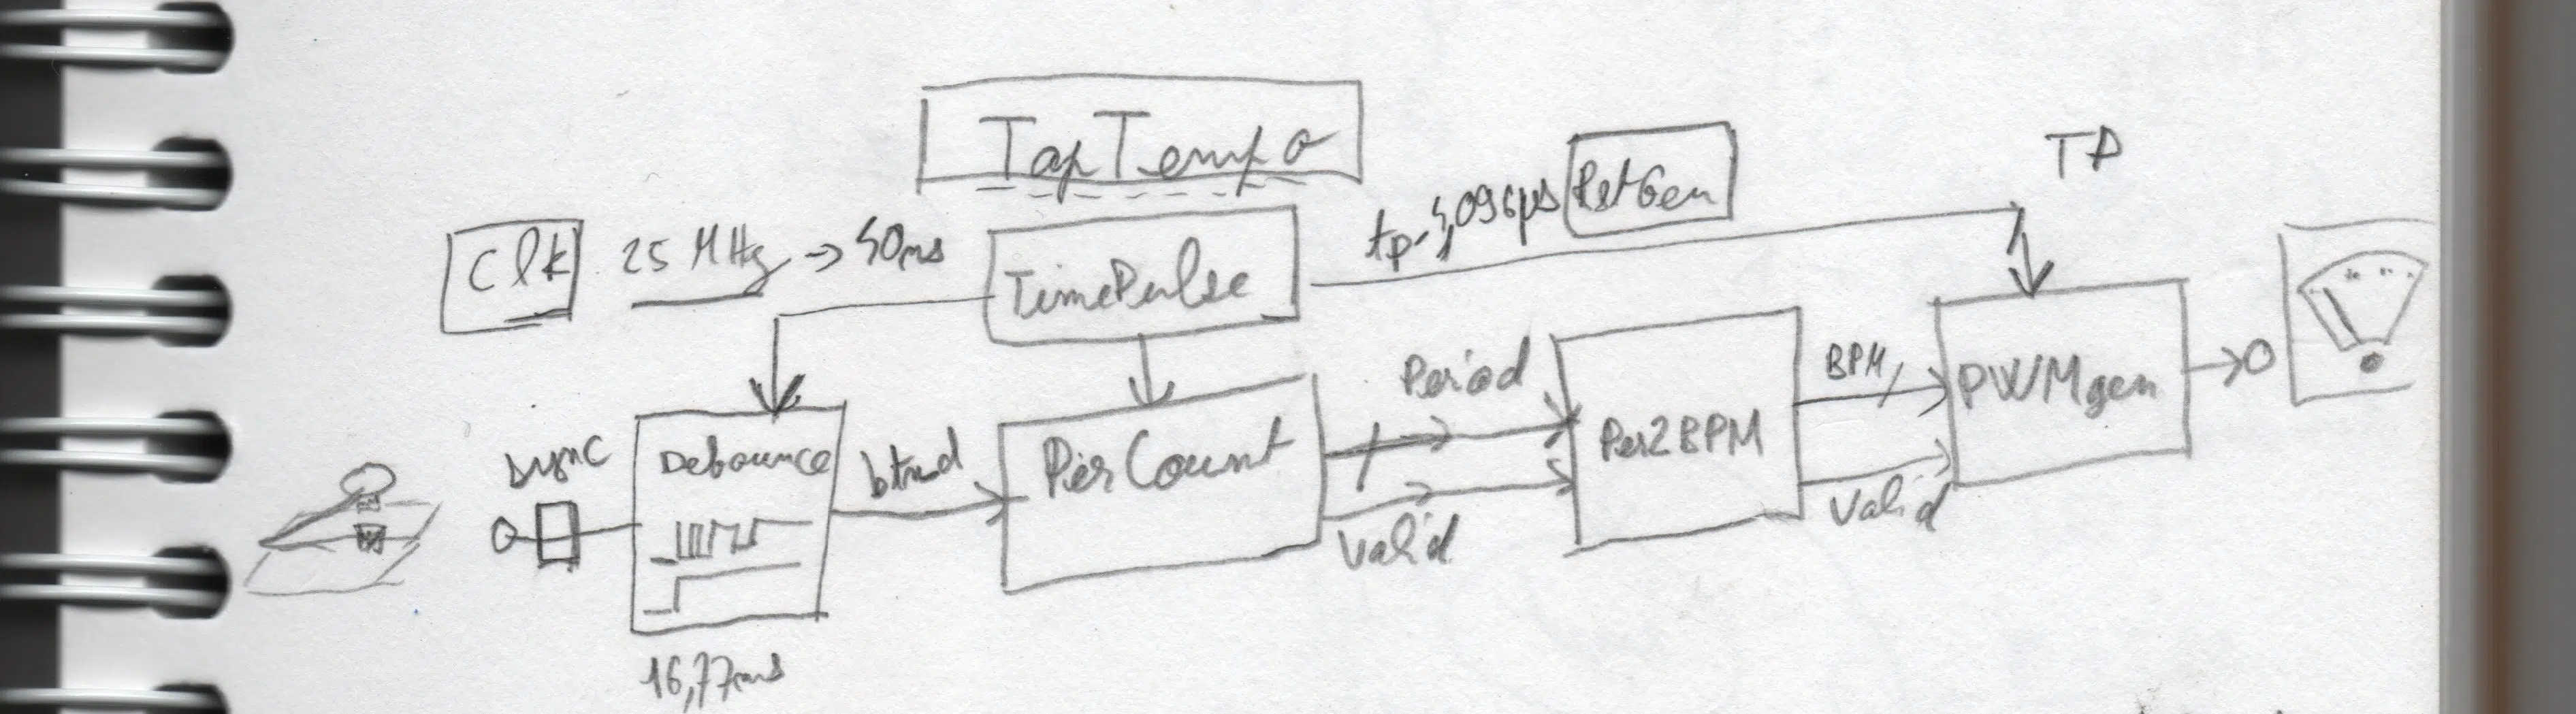 TapTempo
Clk
25 MHz → 40ns
TimePulse
tp-4,096µs
RstGen
TP
sync
Debounce
btn_d
PerCount
Period
Valid
Per2BPM
BPM
Valid
PWMgen
16,77ms